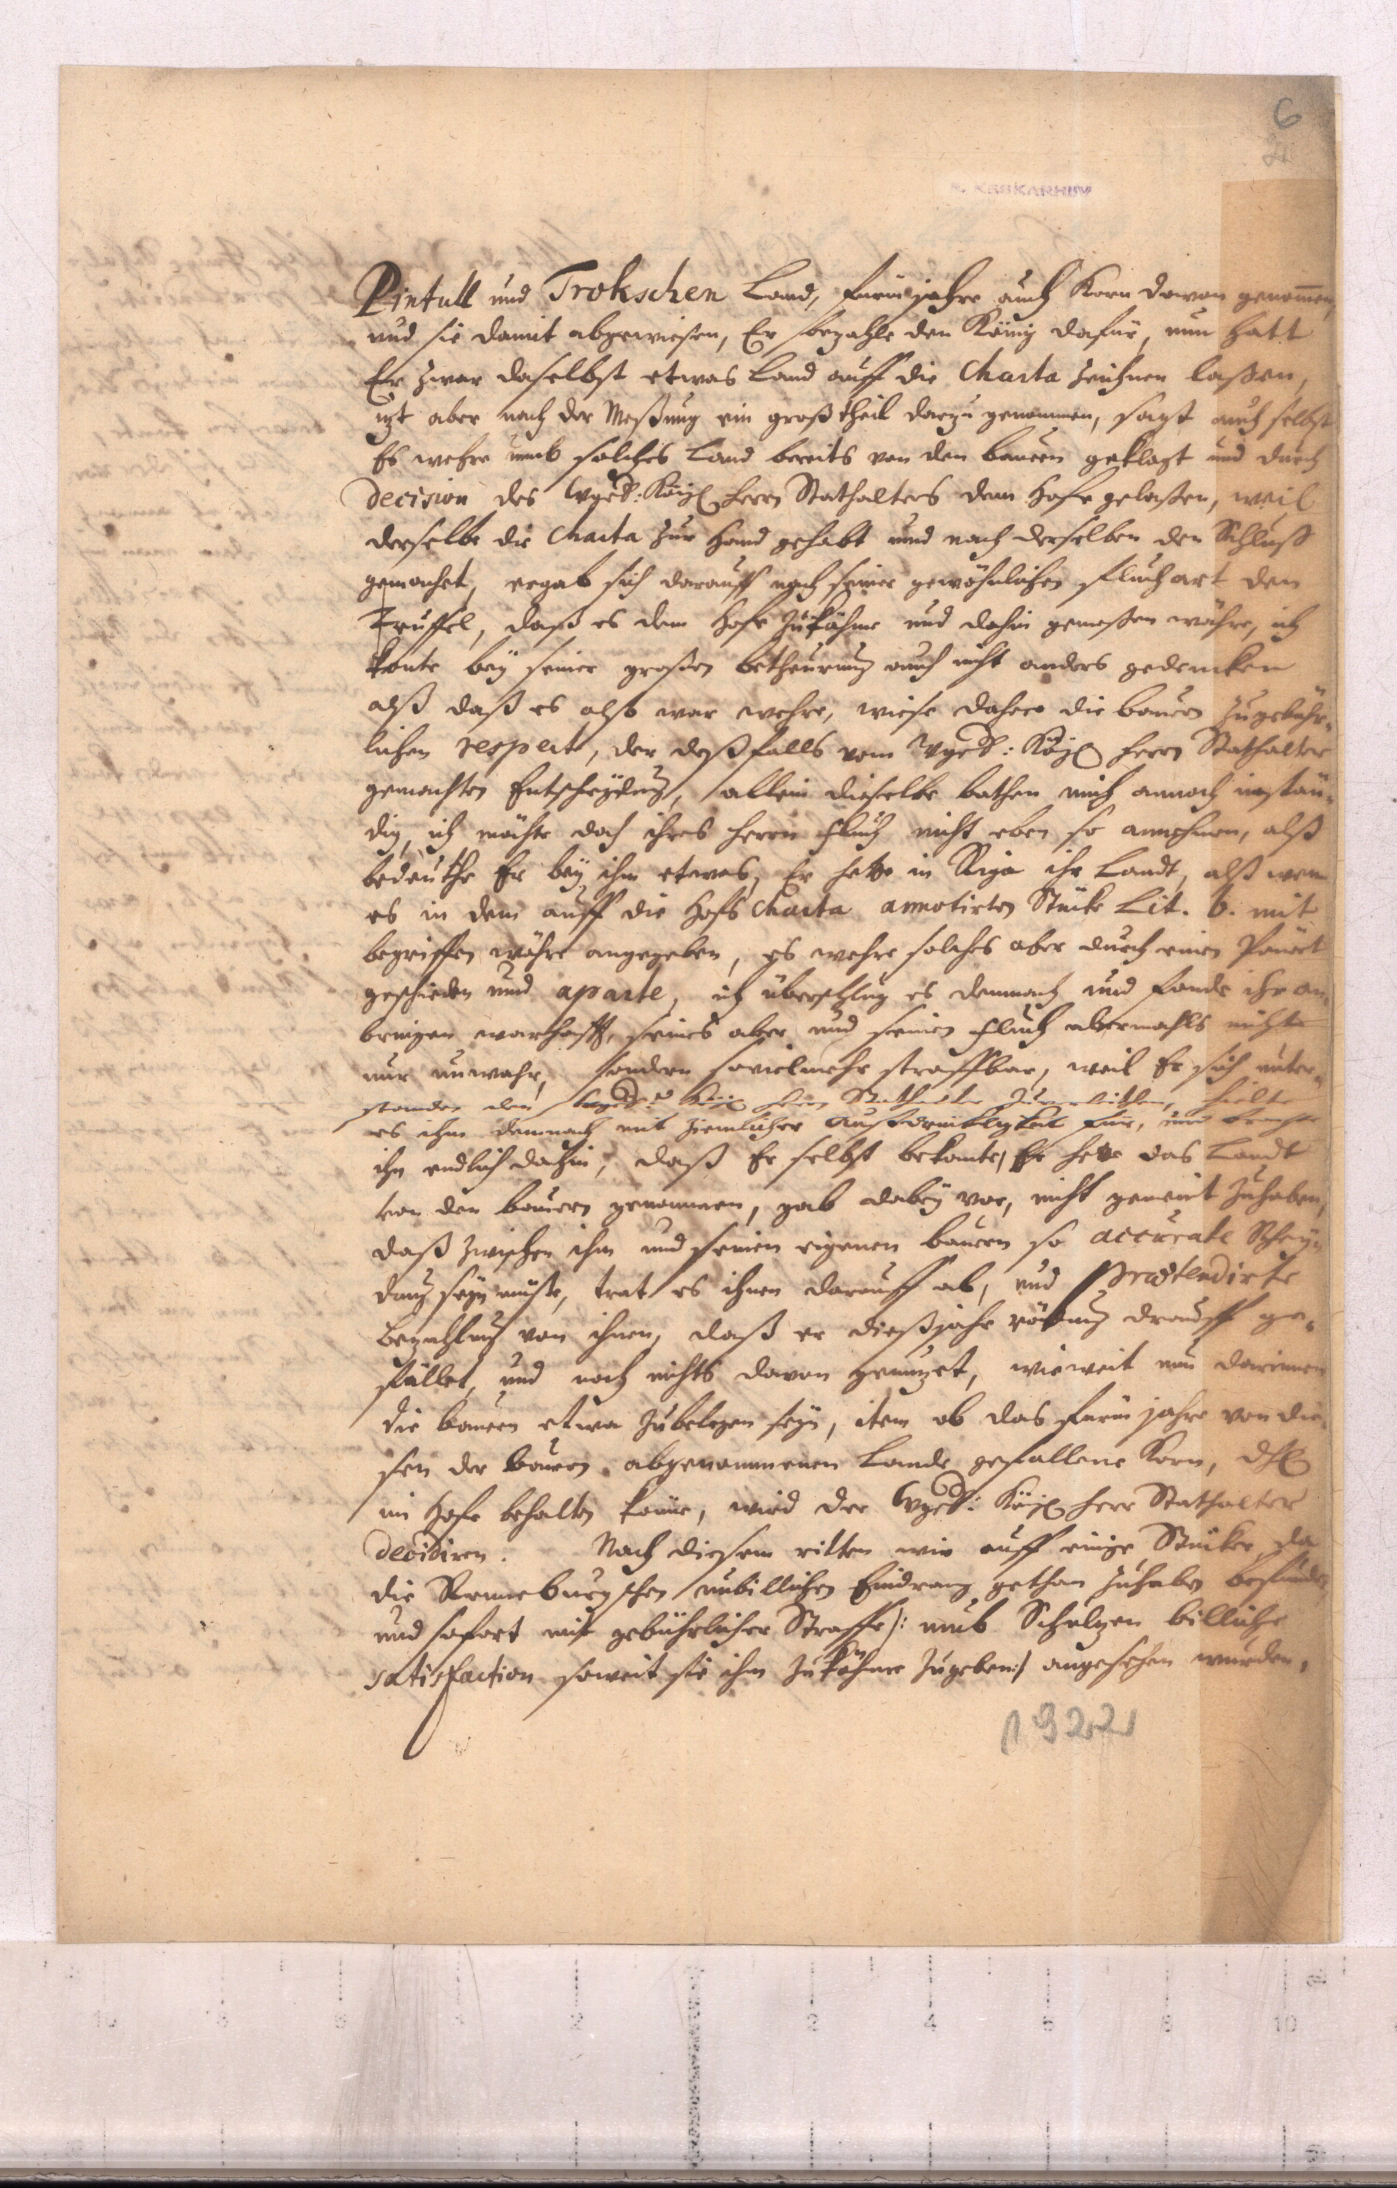 6
Pintull und Trokschen Land, fürmjahre auch Korn davon genommen,
und sie damit abgewiesen, Er bezahle den König dafür, nun hatt
Er zwar daselbst etwas Land auff die Charta zeichnen laßen,
izt aber nach der Meßung ein groß theil darzu genommen, sagt auch selbst
Es wehre umb solches Land bereits von den bauren geklagt und durch
Decision des Königl Herrn Stathalters dem Hofe gelaßen, weil
derselbe die Charta zur Hand gehabt und nach derselben den Schluß
gemachet, ergab sich darauff nach seiner gewöhnlichen fluchart den
Teuffel, daß es dem Hofe zukähme und dahin gemeßen währe, ich
konte bey seiner großen betheurung auch nicht anders gedencken
alß daß es also war wehre, wiese daher die bauren zu gebühr-
lichen respect, der deßfalls vom Königl Herrn Stathalter
gemachten Entscheydung, allein dieselbe bathen mich annoch instän-
dig, ich möchte doch ihres Herrn fluch nicht eben so annehmen, alß
bedeuthe Er bey ihm etwas, Er hette in Riga ihr Landt, alß wen
es in dem auff die Hofs Charta annotirten Stücke Lit. b. mit
begriffen währe angegeben, es wehre solches aber durch einen
geschieden und aparte, ich überschlug es demnach und fande ihr an-
bringen warhafft, seines aber und seinen fluch abermahls nicht
nur unwahr, sondern sovielmehr straffbar, weil Er sich unter-
standen den Königl Herrn Stathalter hielte
es ihm demnach mit ziemlicher Außdrücklichkeit für, und brachte
ihn endlich dahin, daß Er selbst bekante, Er hette das Landt
von den bauren genommen, gab dabey vor, nicht gemeint zuhaben,
daß zwischen ihm und seinen eigenen bauren so accurate Schey-
dung seyn müste, trat es ihnen darauff ab, und prætendirte
Bezahlung von ihnen, daß er dießjahr rödung drauff ge-
fället, und noch nichts davon genutzet, wieweit nun darinnen
die bauren etwa zubelegen seyn, item ob das fürm jahre von die-
sen der bauren abgenommenen Lande gefallene Korn,
im Hofe behalten könne, wird der Königl Herr Stathalter
decidiren. Nach diesem ritten wir auff einige Stücke, da
die Ronneburgschen unbillichen Eindrang gethan zuhaben befunden
und sofort mit gebührlicher Straffe /: umb Schulzen billiche
satisfaction soweit sie ihm zukähme zugeben :/ angesehen wurden,
1922